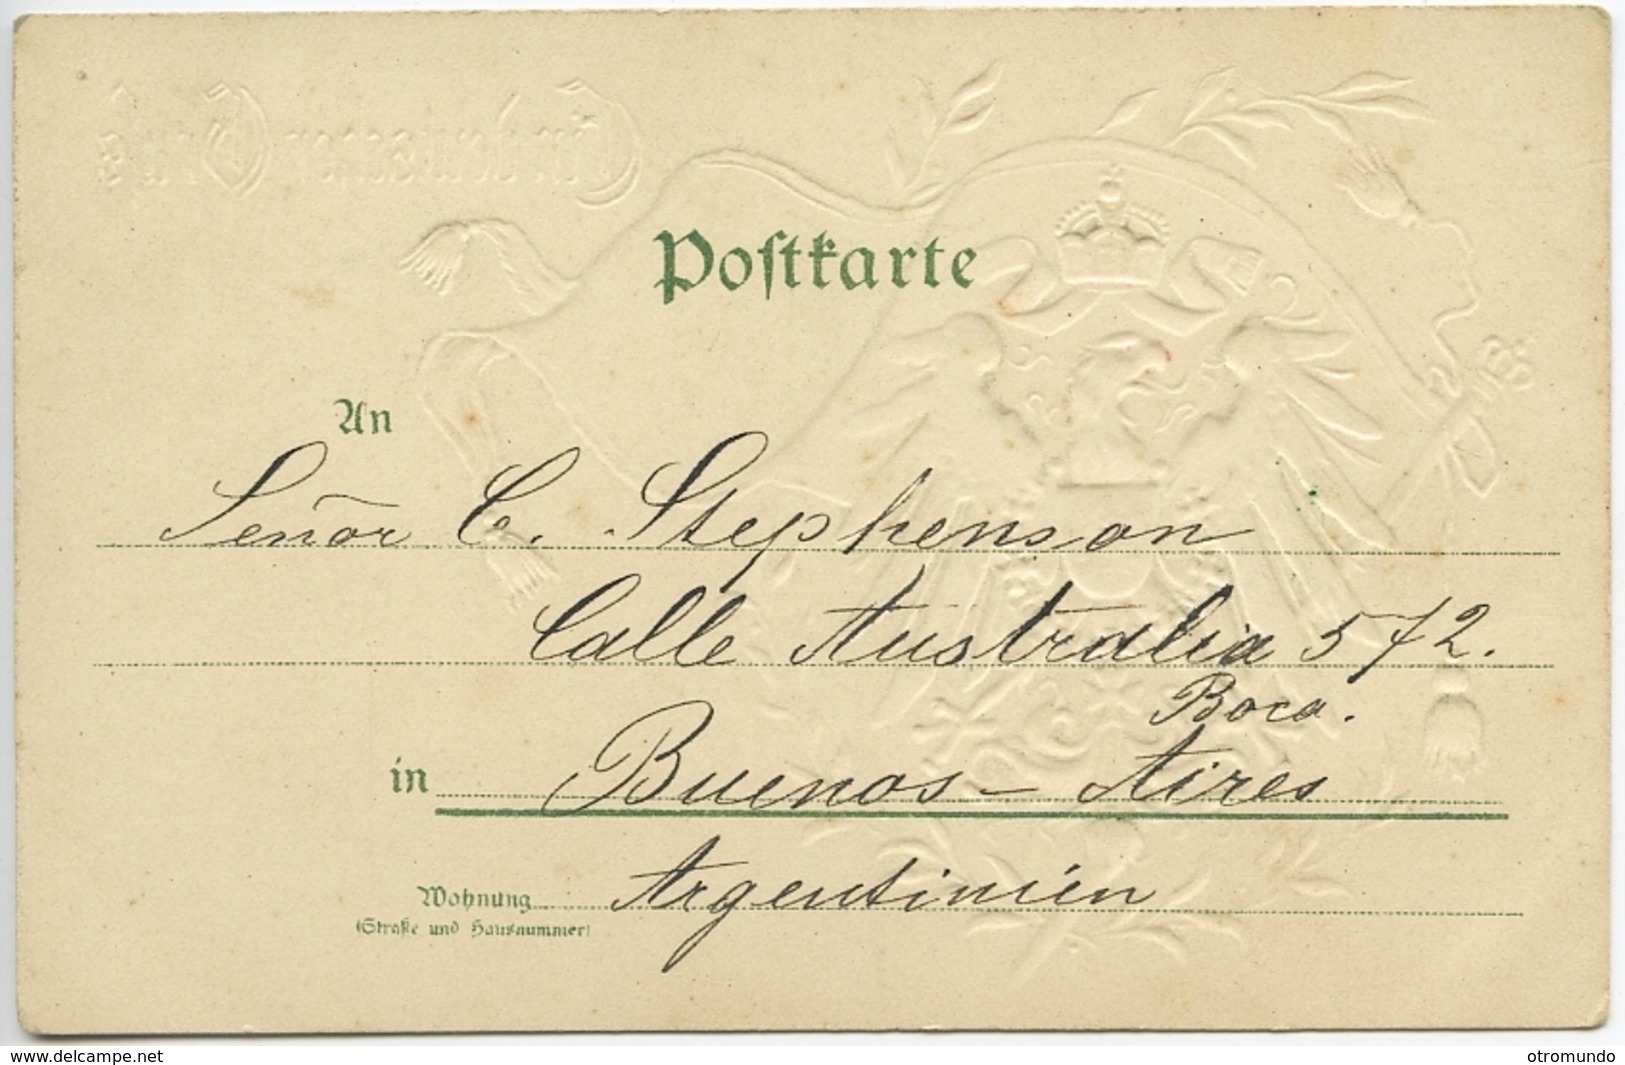 Ein deutscher Gruß
Postkarte
An
Señor C. Stephenson
Calle Australia 572.
Boca.
in Buenos-Aires
Wohnung Argentinien
(Straße und Hausnummer)
www.delcampe.net
otromundo